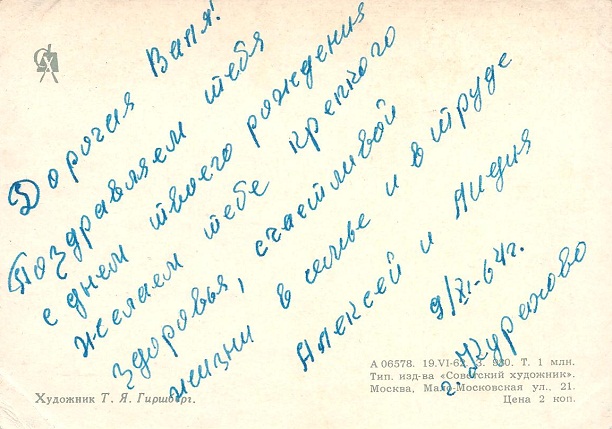 Дорогая Валя!
Поздравляем тебя
с днем твоего рождения
желаем тебе крепкого
здоровья, счастливой
жизни в семье и в труде
Алексей и Лидия
9/XI-64г.
г. Курахово
Художник Т. Я. Гиршберг.
А 06578. 19.VI-62 З. 930. Т. 1 млн.
Тип. изд-ва «Советский художник».
Москва, Мало-Московская ул., 21.
Цена 2 коп.